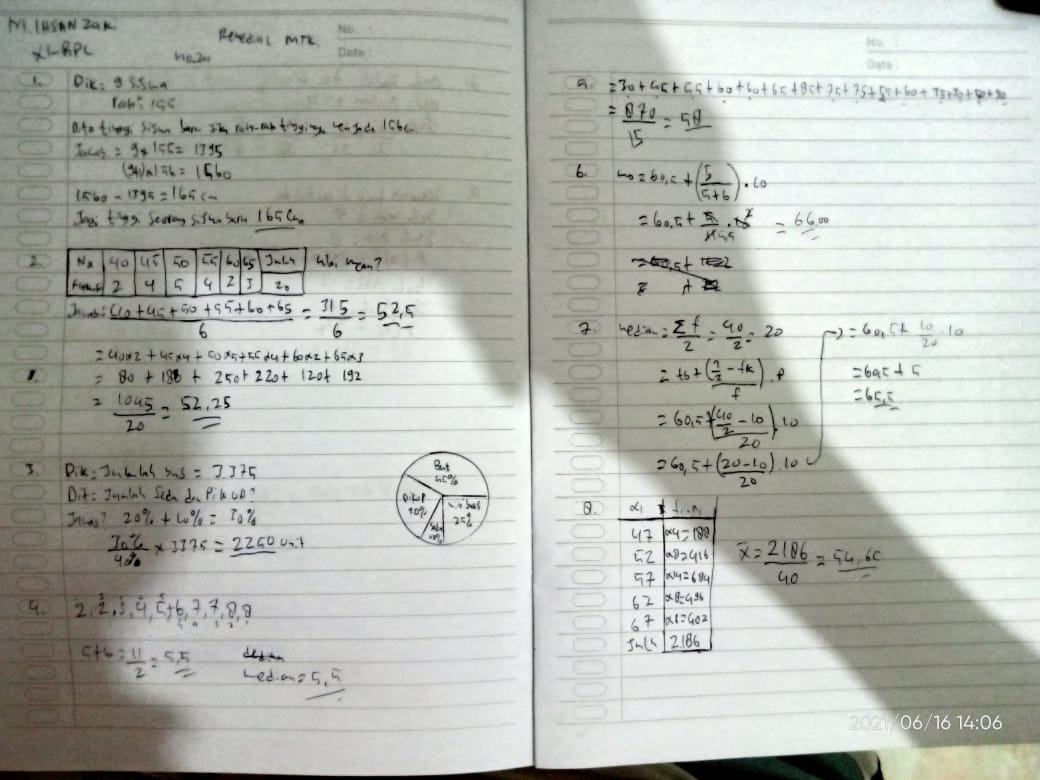 M. IHSAN Zaki
XI-RPL
Remedial MTK
No.24
No. :
Date :
1. Dik: 9 siswa
rata²: 155
Dita tinggi siswa baru jika rata-rata tingginya menjadi 156cm
Jawab = 9x155 = 1395
1560
1560 - 1395 = 165 cm
Jadi tinggi seorang siswa baru 165 cm
2. Nx 40 45 50 55 60 65 Jmlh
2 4 5 4 2 3 20
Jawab: 40 + 45 + 50 + 55 + 60 + 65 / 6 = 315 / 6 = 52,5
= 40x2 + 45x4 + 50x5 + 55x4 + 60x2 + 65x3
= 80 + 180 + 250 + 220 + 120 + 192
= 1045 / 20 = 52,25
3. Dik: Jumlah bus = 3.375
Dit = Jumlah Sedan dan Pik UP?
Jawab? 20% + 10% = 30%
x 3375 = 2250 unit
Bus
45%
PikUP
10%
25%
4. 2, 2, 3, 4, 5+6, 7, 7, 8, 8
5+6 = 11 / 2 = 5,5
median = 5,5
No. :
Date :
5.
= 870 / 15 = 58
6. Mo = 60,5 + (5 / 5+6) . 10
= 66,00
7. median = Σf / 2 = 40 / 2 = 20
= tb + (n/2 - fk / f) . P
= 60,5 + (40/2 - 10 / 20) 10
= 60,5 + (20-10 / 20) . 10
= 60,5 + 10 / 20 . 10
= 60,5 + 5
= 65,5
8. xi fi . xi
47 x4 = 188
52 x8 = 416
57
62 x8 = 496
67
Jmlh 2.186
x̄ = 2186 / 40 = 54,65
2021/06/16 14:06